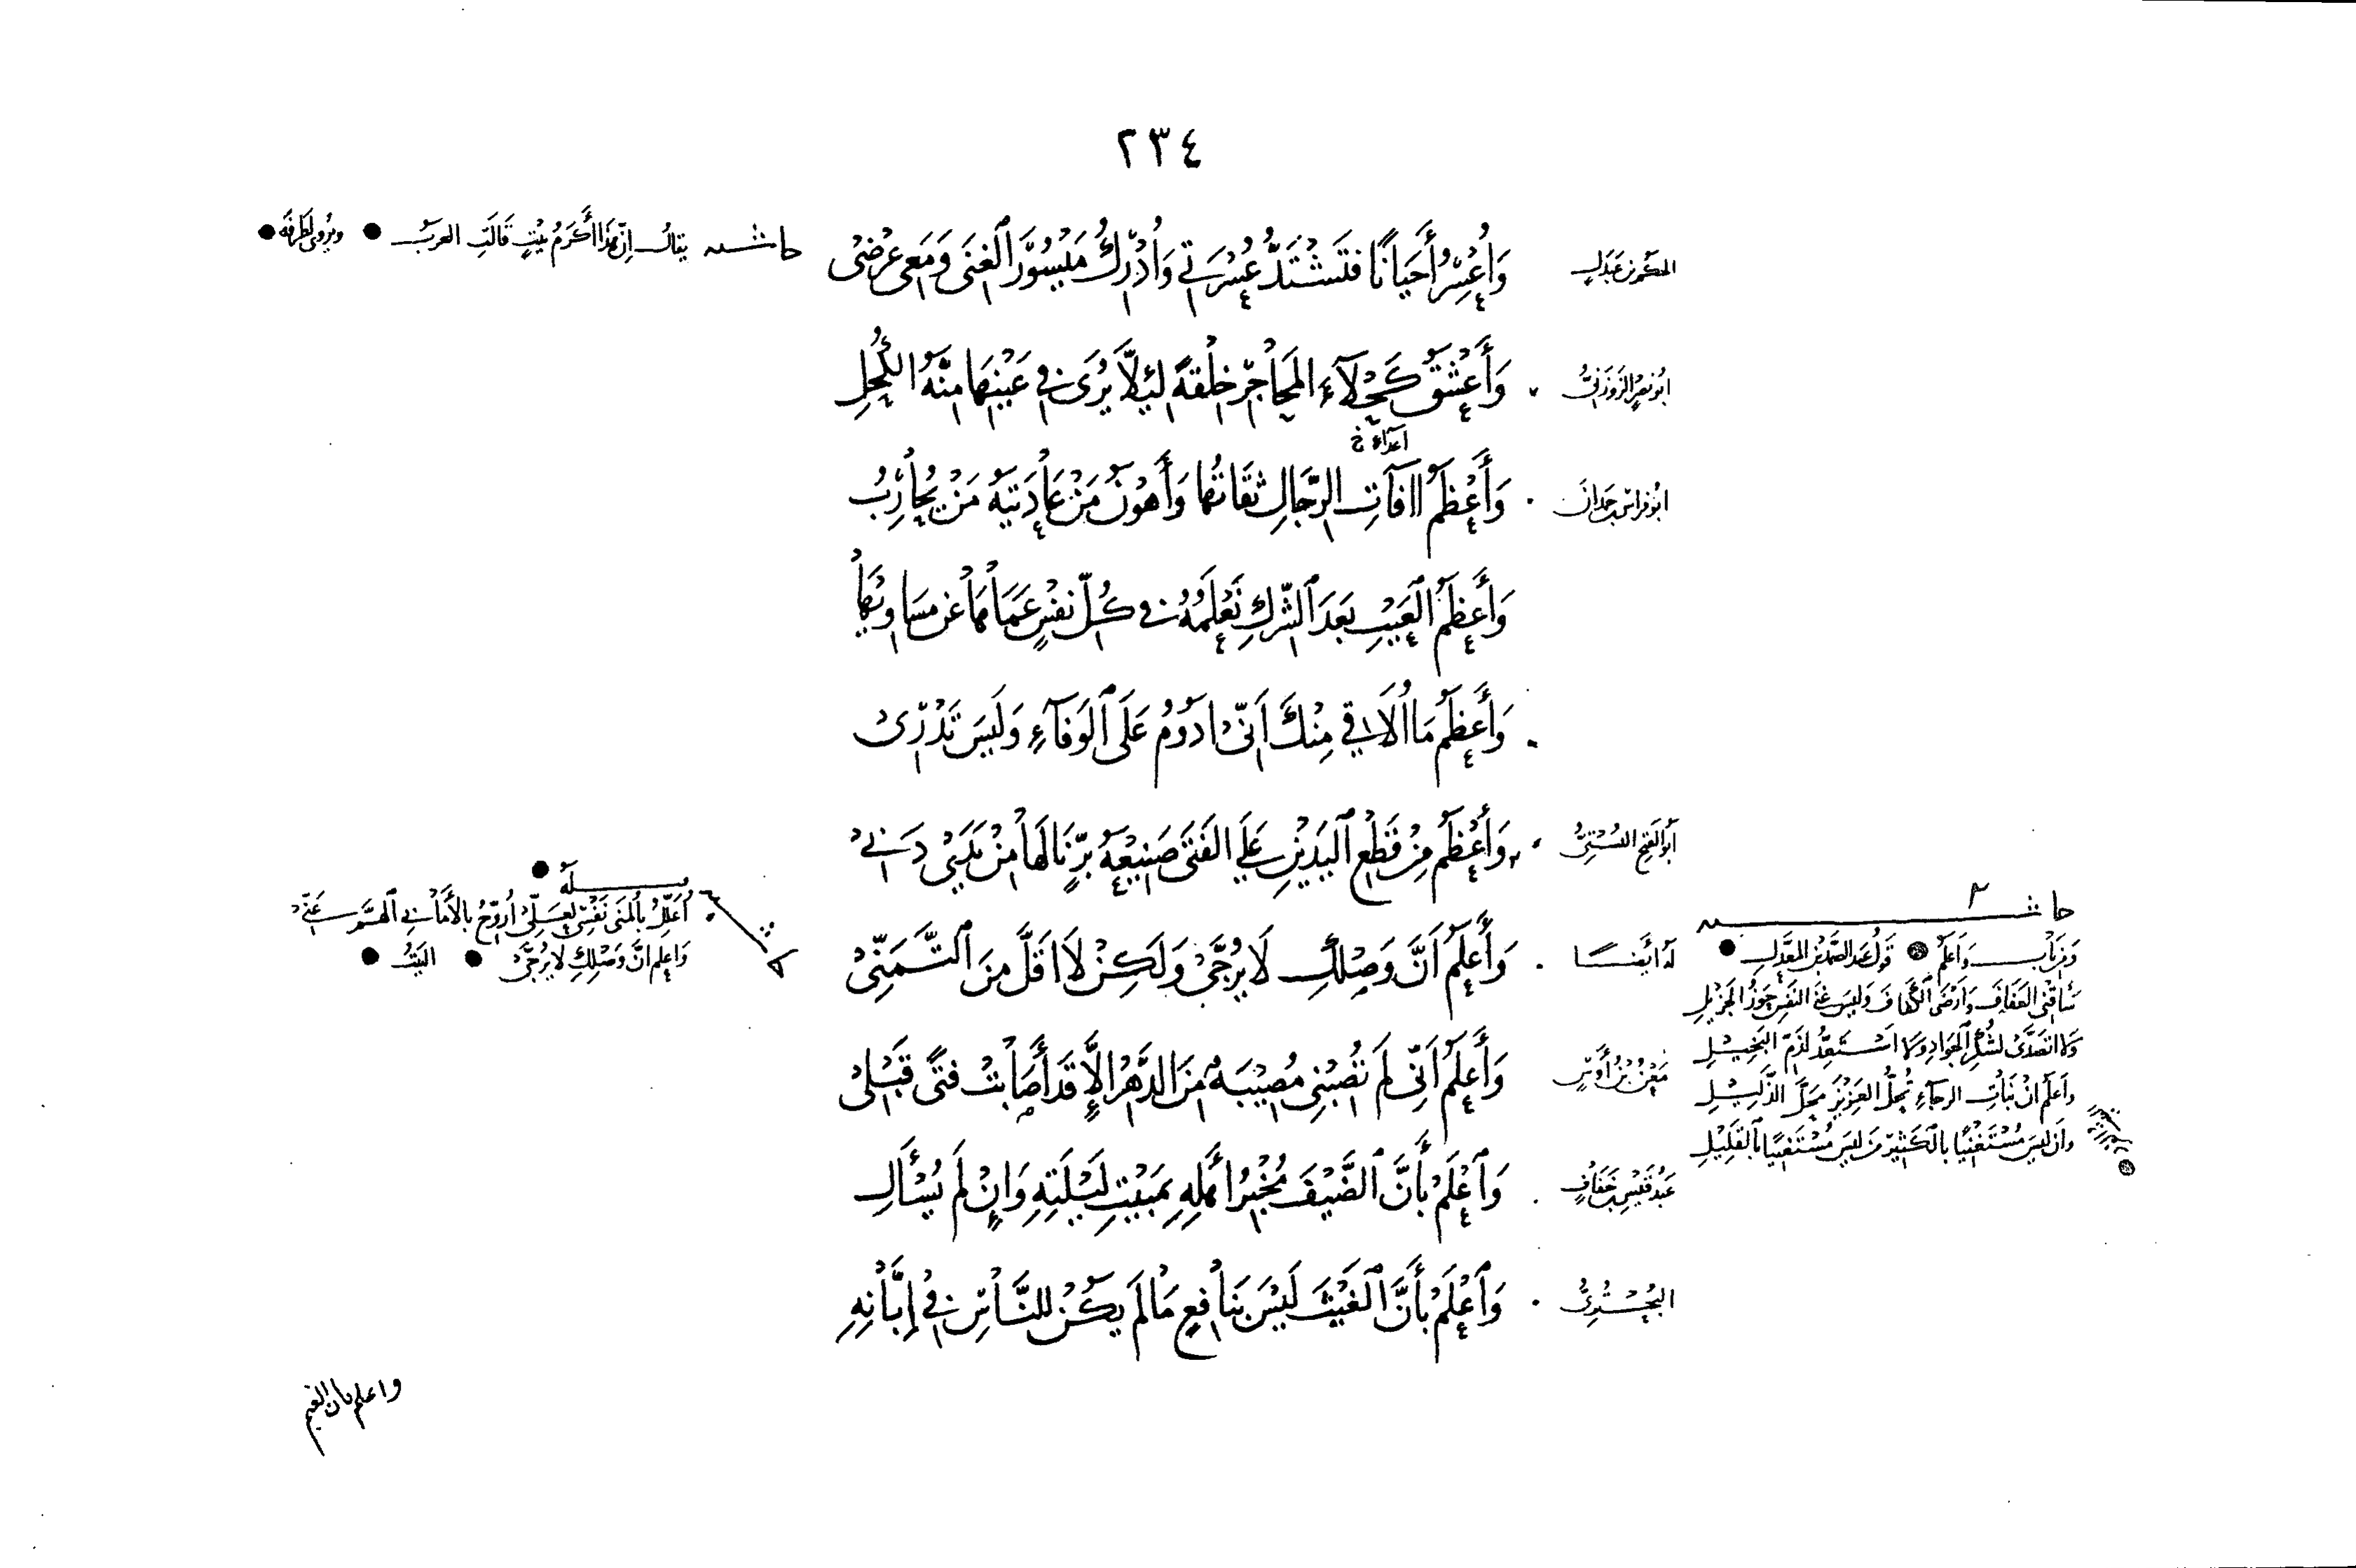 ٢٣٤
الحكم بن عبدل
وَأُعْسِرُ أَحْيَانًا فَتَشْتَدُّ عُسْرَتِي وَأُدْرِكُ مَيْسُورَ الْغِنَى وَمَعِي عِرْضِي
حاشية يقال إنّ هذا أكرم بيت قالت العرب ● ويروى لطرفة ●
أبو نصر الزوزني
وَأَعْشَقُ كَحْلَاءَ الْمَحَاجِرِ خِلْقَةً لِئَلَّا يُرَى فِي عَيْنِهَا مِنَّةُ الْكُحْلِ
أعداء خ
أبو فراس بن حمدان
وَأَعْظَمُ آفَاتِ الرِّجَالِ ثِقَاتُهَا وَأَهْوَنُ مَنْ عَادَيْتَهُ مَنْ يُحَارِبُ
وَأَعْظَمُ الْعَيْبِ بَعْدَ الشِّرْكِ تَعْلَمُهُ فِي كُلِّ نَفْسٍ عَمَاهَا عَنْ مَسَاوِيهَا
وَأَعْظَمُ مَا أُلَاقِي مِنْكَ أَنِّي أَدُومُ عَلَى الْوَفَاءِ وَلَيْسَ تَدْرِي
أبو الفتح البستي
وَأَعْظَمُ مِنْ قَطْعِ الْيَدَيْنِ عَلَى الْفَتَى صَنِيعَةُ بِرٍّ نَالَهَا مِنْ يَدَيْ دَنِي
له أيضا
وَأَعْلَمُ أَنَّ وَصْلَكِ لَا يُرَجَّى وَلَكِنْ لَا أَقَلَّ مِنَ التَّمَنِّي
قبله ●
أُعَلِّلُ بِالْمُنَى نَفْسِي لَعَلِّي أُرَوِّحُ بِالْأَمَانِي الْهَمَّ عَنِّي
وَأَعْلَمُ أَنَّ وَصْلَكِ لَا يُرَجَّى ● البيت ●
معن بن أوس
وَأَعْلَمُ أَنِّي لَمْ تُصِبْنِي مُصِيبَةٌ مِنَ الدَّهْرِ إِلَّا قَدْ أَصَابَتْ فَتًى قَبْلِي
عبد قيس بن خفاف
وَاعْلَمْ بِأَنَّ الضَّيْفَ مُخْبِرُ أَهْلِهِ بِمَبِيتِ لَيْلَتِهِ وَإِنْ لَمْ يُسْأَلِ
البحتري
وَاعْلَمْ بِأَنَّ الْغَيْثَ لَيْسَ بِنَافِعٍ مَا لَمْ يَكُنْ لِلنَّاسِ فِي إِبَّانِهِ
حاشية
ومن باب وأعلم قول عبد الصمد بن المعذل ●
سَأَقْنَى الْعَفَافَ وَأَرْضَى الْكَفَافَ وَلَيْسَ غِنَى النَّفْسِ حَوْزَ الْجَزِيلِ
وَلَا أَتَصَدَّى لِشُكْرِ الْجَوَادِ وَلَا أَسْتَعِدُّ لِذَمِّ الْبَخِيلِ
وَأَعْلَمُ أَنَّ بَنَاتِ الرَّجَاءِ تُحِلُّ الْعَزِيزَ مَحَلَّ الذَّلِيلِ
وَأَنْ لَيْسَ مُسْتَغْنِيًا بِالْكَثِيرِ مَنْ لَيْسَ مُسْتَغْنِيًا بِالْقَلِيلِ
واعلم بأن الغيم